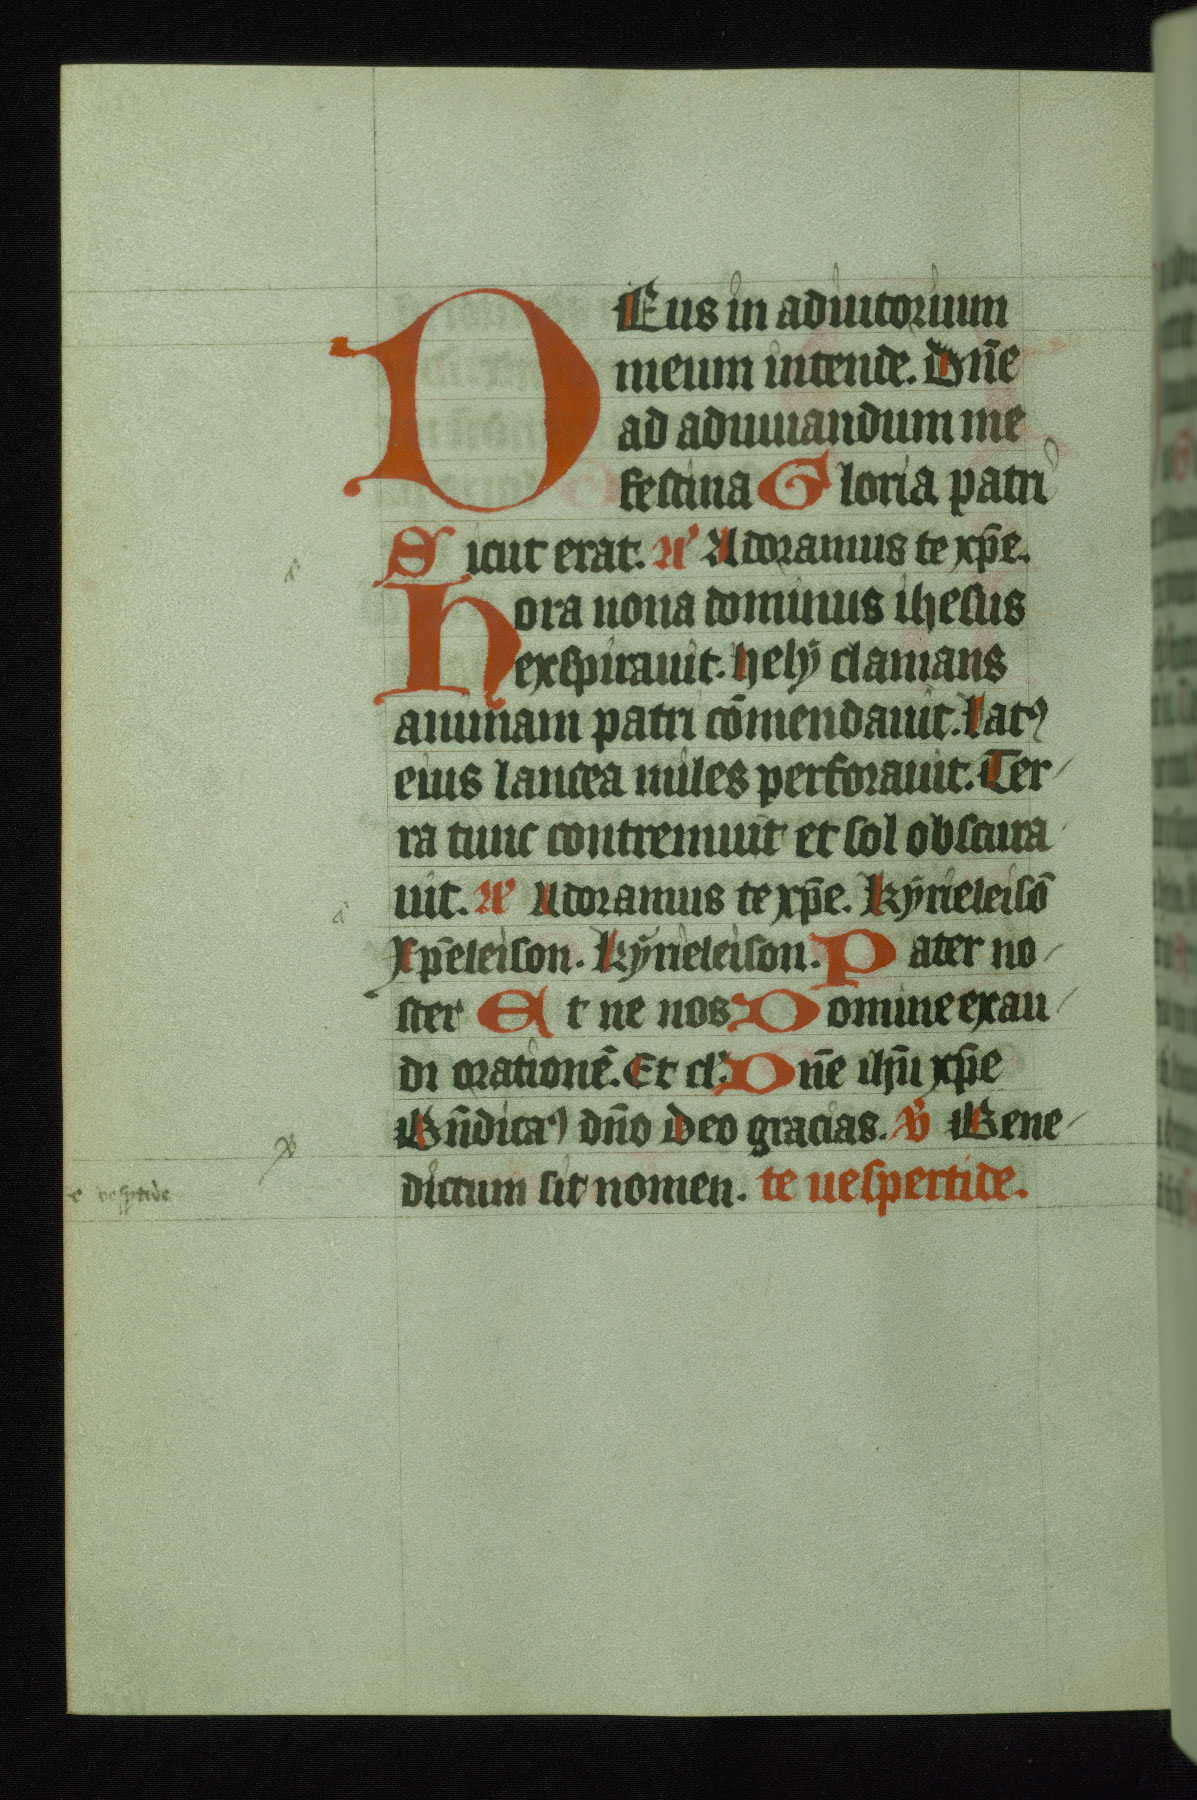 DEus in adiutorium
meum intende. Dn̄e
ad adiuuandum me
festina Gloria patri
Sicut erat. a᷑ Adoramus te xp̄e.
Hora nona dominus ihesus
exspirauit. hely clamans
animam patri cōmendauit. Latꝰ
eius lancea miles perforauit. Ter-
ra tunc contremuit et sol obscura-
uit. a᷑ Adoramus te xp̄e. kyrieleisō
Xp̄eleison. kyrieleison. Pater no-
ster Et ne nos Domine exau-
di orationē. Et cl'. Dn̄e ihū xp̄e
Bn̄dicaꝰ dn̄o Deo gracias. v᷑ Bene-
dictum sit nomen. te uespertide.
te vesptide